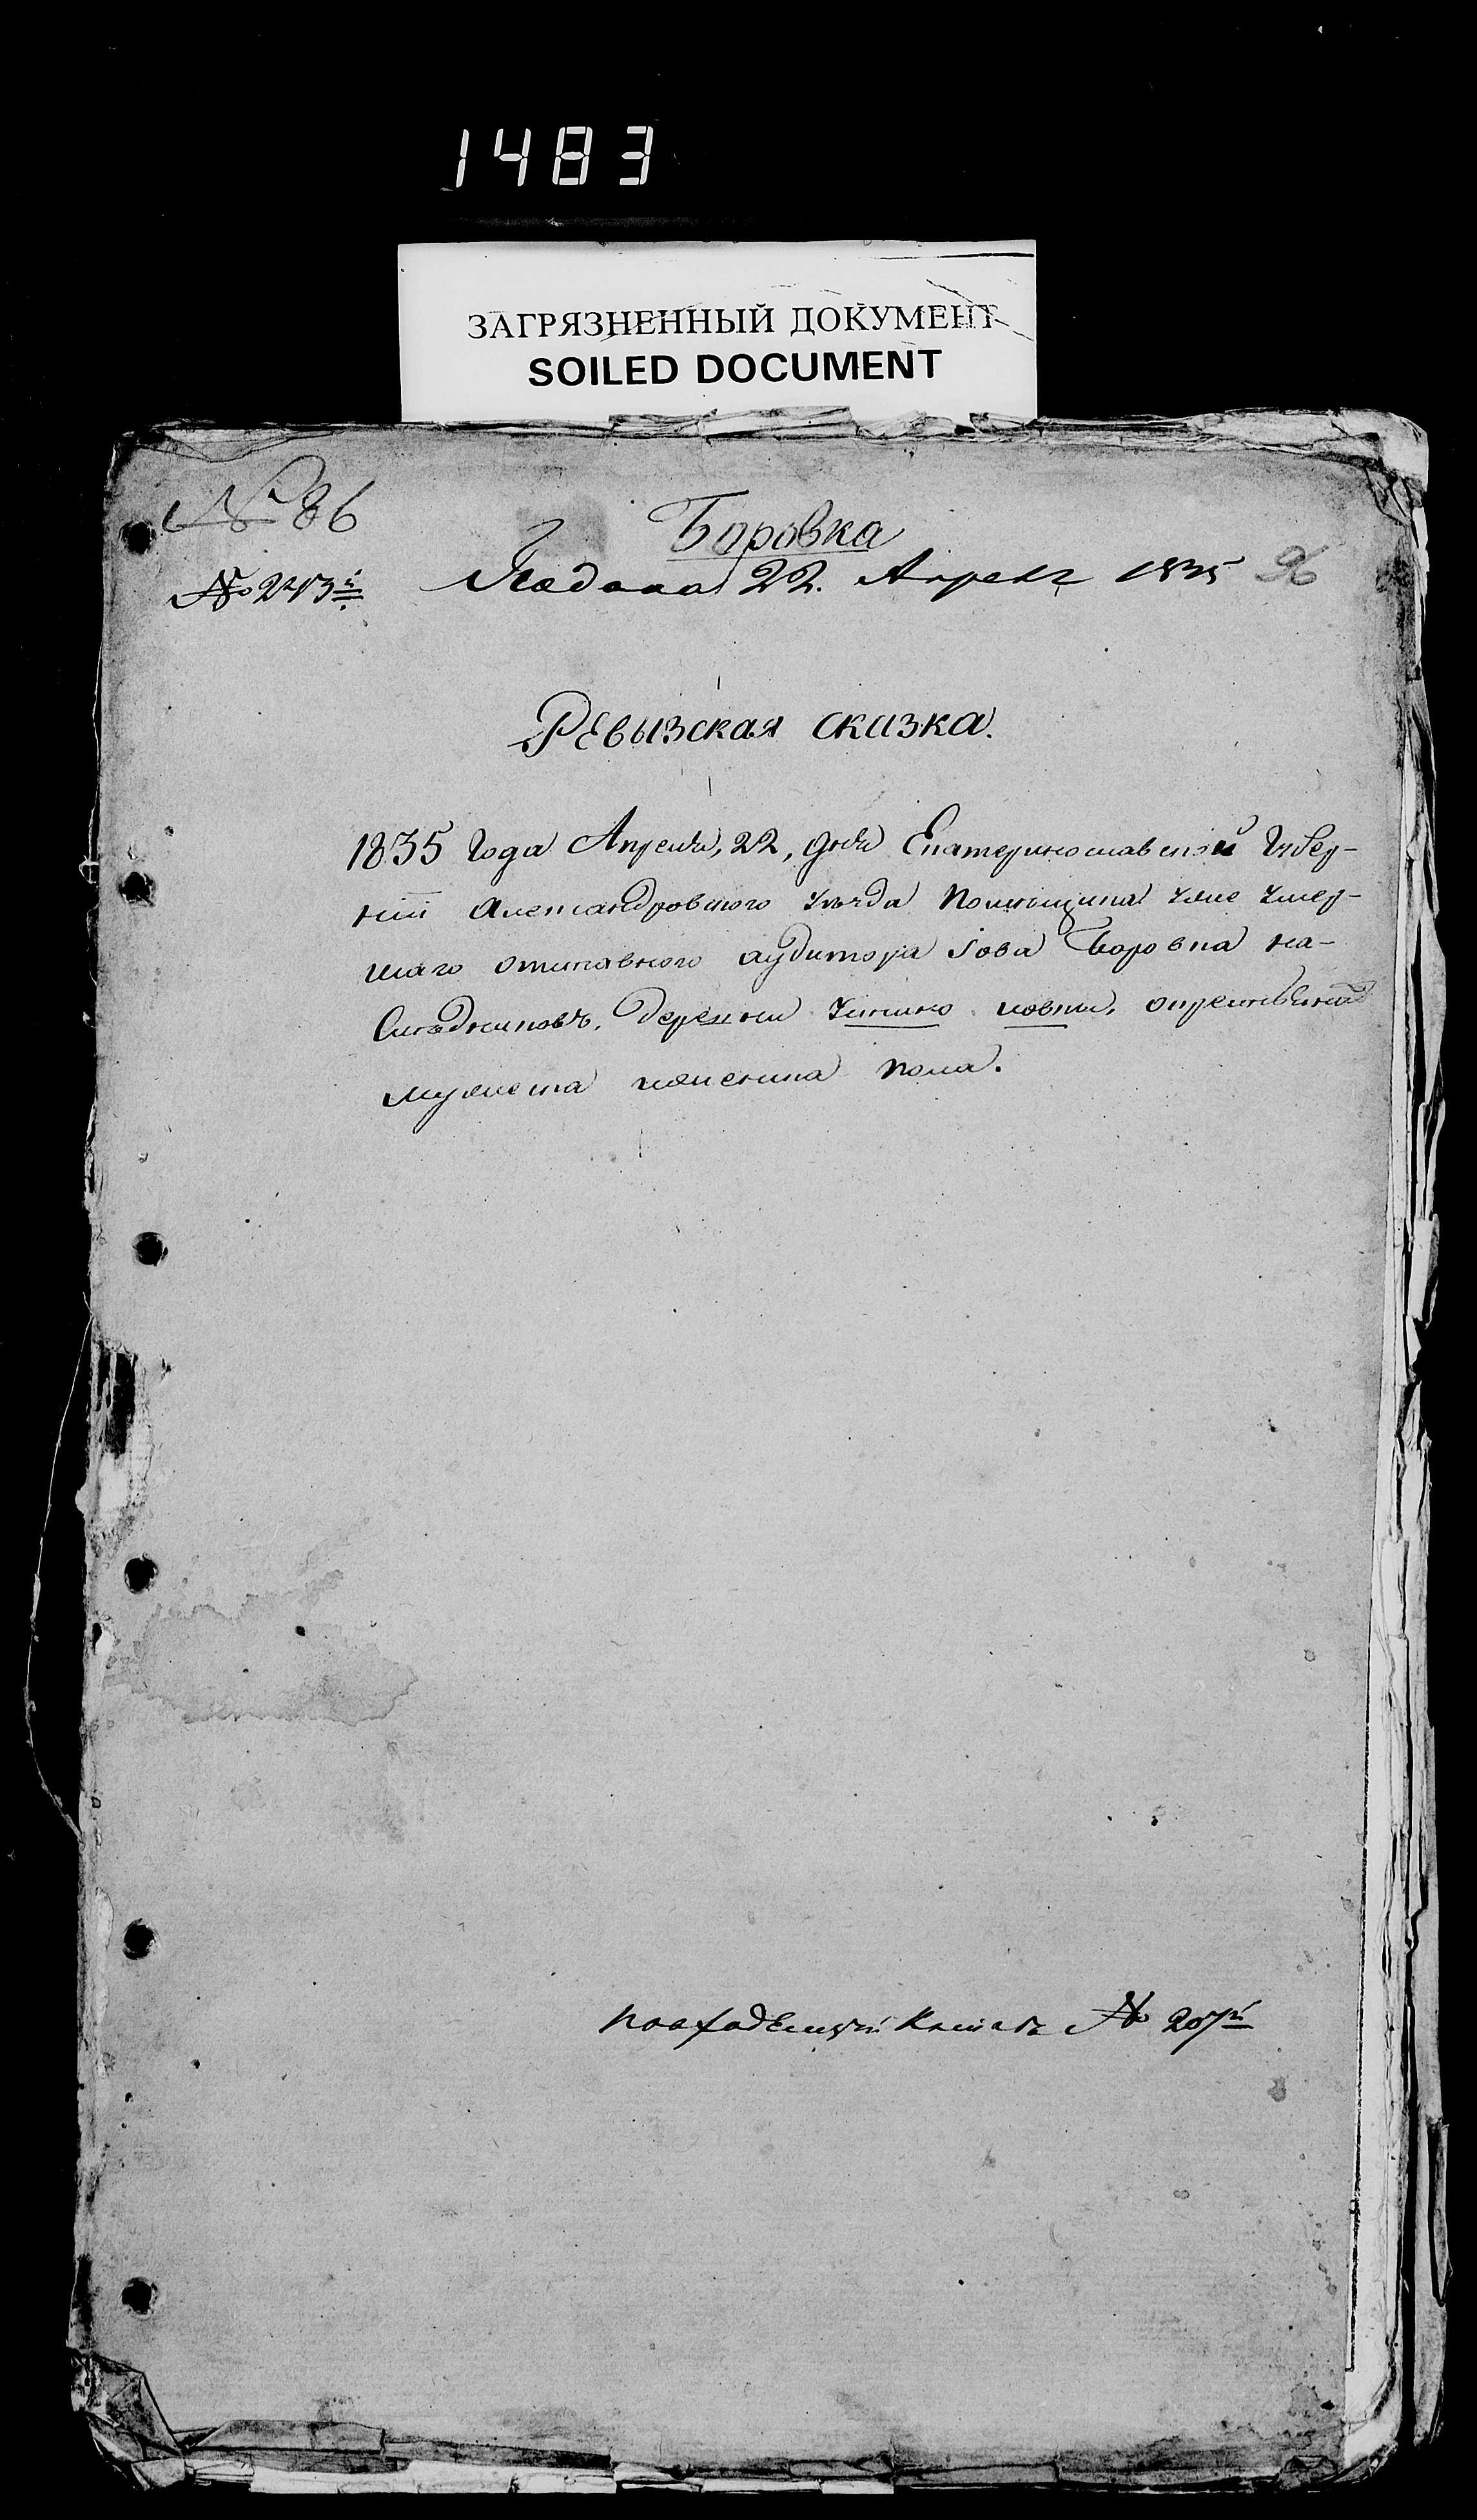 1483
ЗАГРЯЗНЕННЫЙ ДОКУМЕНТ
SOILED DOCUMENT
№ 86
Боровка
№ 243й Подана 22. Апреля 1835 96
Ревызская сказка.
1835 Года Апреля, 22, дня Екатеринославской Губер-
нiи Александровского уѣзда Помѣщика уже умер-
шаго отставного аудитора Iова Боровка на-
слѣдниковъ. деревни
мужеска женска пола.
№ 207й